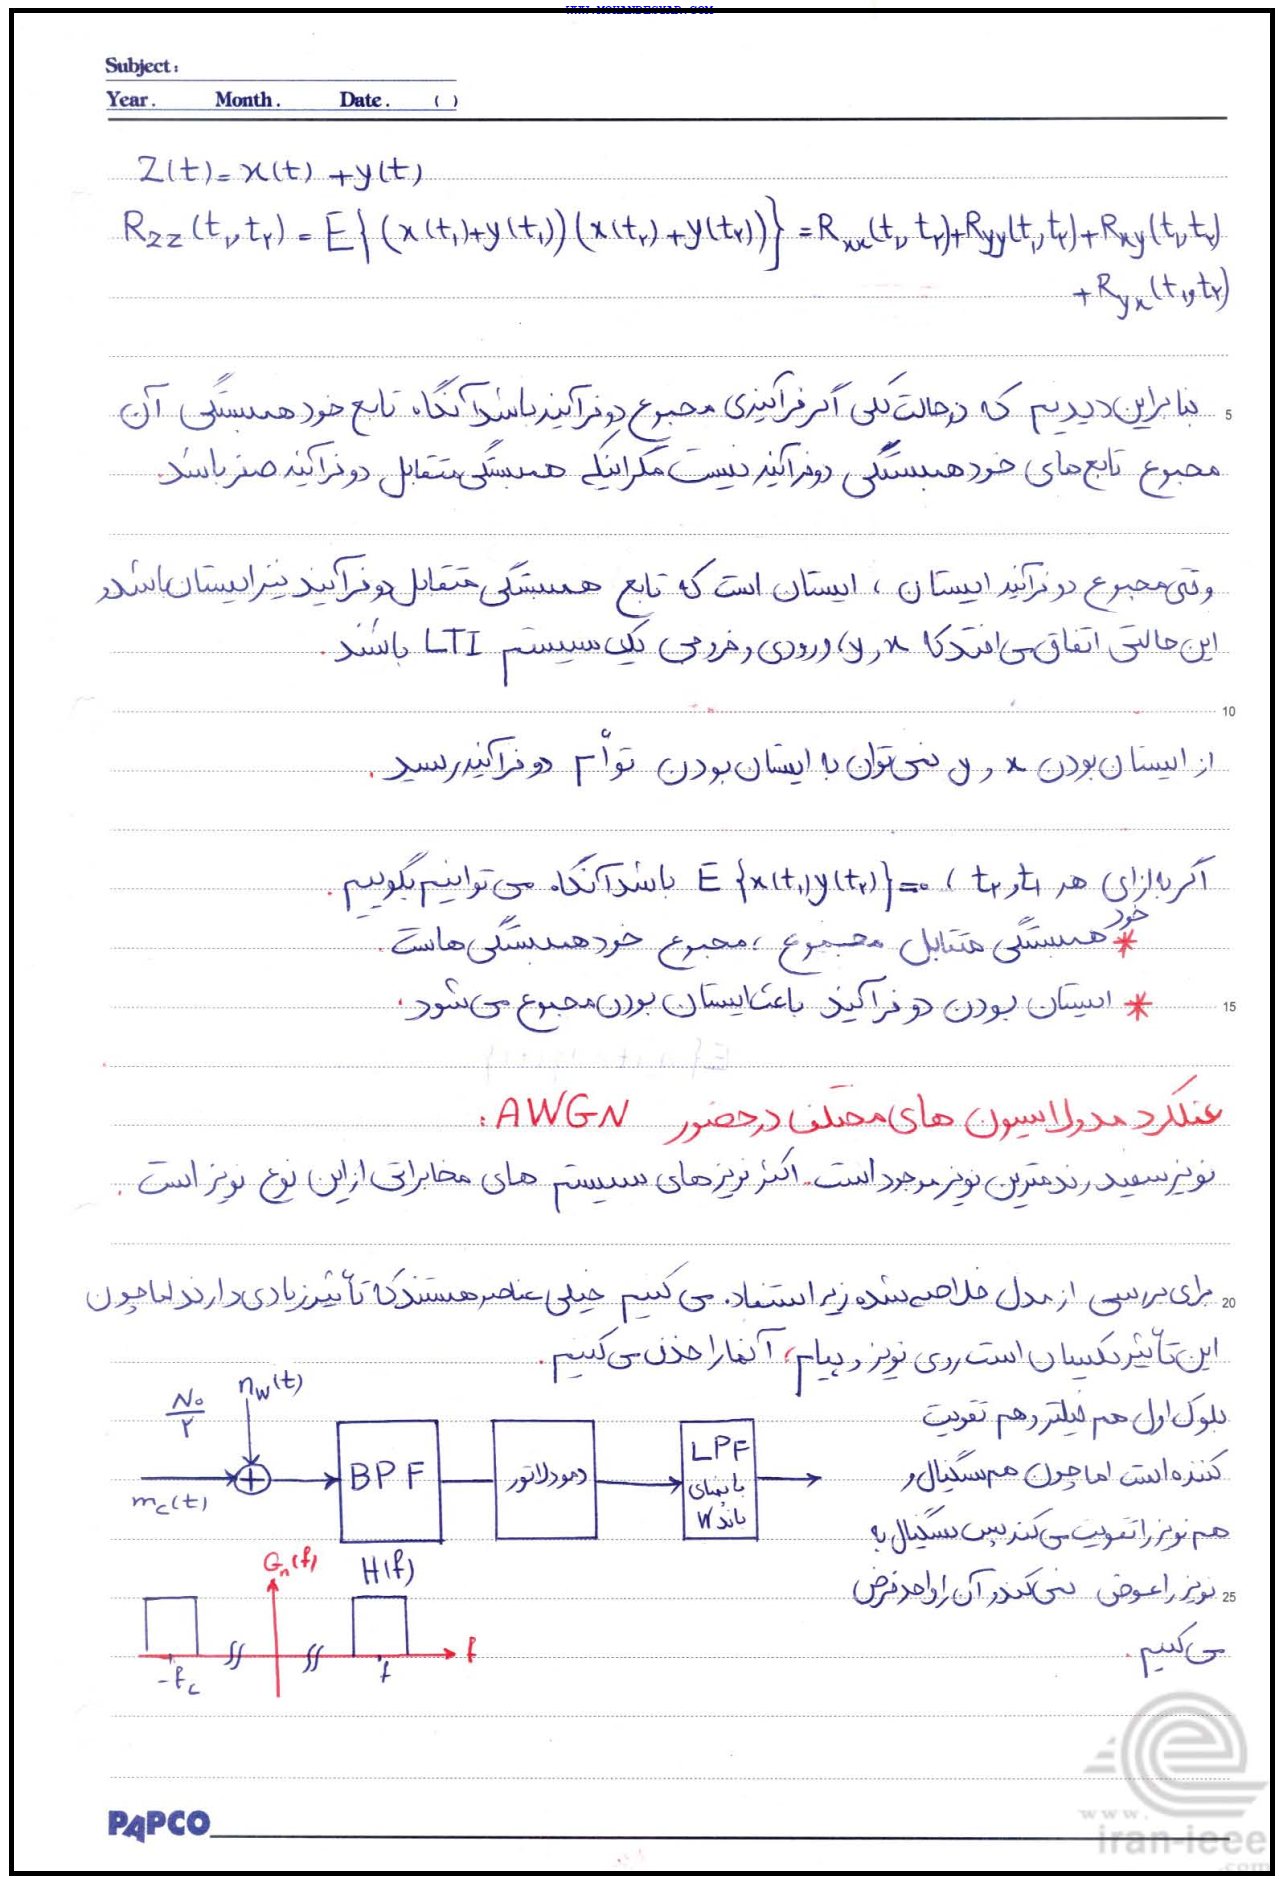 WWW.MOHANDESYAR.COM
Subject:
Year. Month. Date. ( )
Z(t) = x(t) + y(t)
Rzz(t₁, t₂) = E{(x(t₁)+y(t₁))(x(t₂)+y(t₂))} = Rxx(t₁, t₂)+Ryy(t₁, t₂)+Rxy(t₁, t₂)
+Ryx(t₁, t₂)
بنابراین دیدیم که در حالت کلی اگر فرآیندی مجموع دو فرآیند باشد آنگاه تابع خود همبستگی آن 5
مجموع تابع های خود همبستگی دو فرآیند نیست مگر اینکه همبستگی متقابل دو فرآیند صفر باشد.
وقتی مجموع دو فرآیند ایستان ، ایستان است که تابع همبستگی متقابل دو فرآیند نیز ایستان باشد و
این حالتی اتفاق می افتد که x و y، ورودی و خروجی یک سیستم LTI باشند.
10
از ایستان بودن x و y نمی توان به ایستان بودن توأم دو فرآیند رسید.
اگر به ازای هر t₁ و t₂ ، E{x(t₁)y(t₂)}=0 باشد آنگاه می توانیم بگوییم.
خود
* همبستگی متقابل مجموع ، مجموع خود همبستگی هاست.
* ایستان بودن دو فرآیند باعث ایستان بودن مجموع می شود. 15
عملکرد مدولاسیون های مختلف در حضور AWGN :
نویز سفید رندمترین نویز موجود است. اکثر نویزهای سیستم های مخابراتی از این نوع نویز است.
برای بررسی از مدل خلاصه شده زیر استفاده می کنیم خیلی عناصر هستند که تأثیر زیادی دارند اما چون 20
این تأثیر یکسان است روی نویز و پیام، آنها را حذف می کنیم.
بلوک اول هم فیلتر و هم تقویت
کننده است اما چون هم سیگنال و
هم نویز را تقویت می کند پس سیگنال به
نویز را عوض نمی کند و آن را واحد فرض 25
می کنیم.
N₀/2
n_w(t)
m_c(t)
+
BPF
دمودلاتور
LPF
با پهنای
باند W
G_n(f)
H(f)
f
-f_c
f
PAPCO
www.
iran-ieee
.com